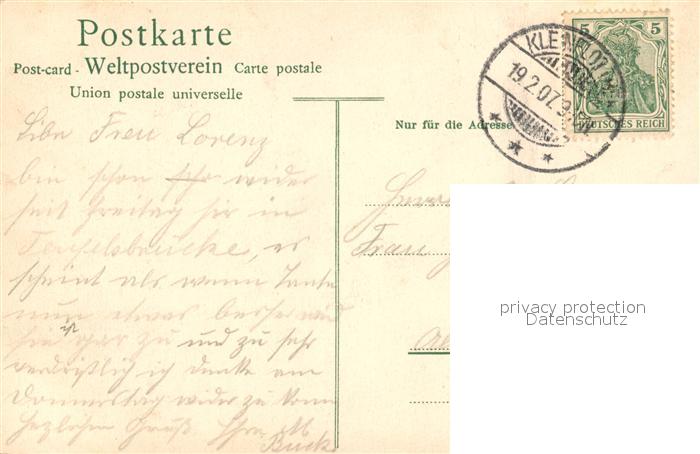 Postkarte
Post-card - Weltpostverein Carte postale
Union postale universelle
Nur für die Adresse
5 5
DEUTSCHES REICH
KLEIN
19.2.07.
Libe Frau Lorenz
bin schon wider
seit freitag hir in
Teufelsbrücke, es
scheint als wenn Tante
nun etwas besser wird
sie ist gar zu und zu sehr
verdrißlich ich denke am
Donnerstag wider zu komm
Herzlichen Gruß Ihre M
Buck
Frau
privacy protection
Datenschutz